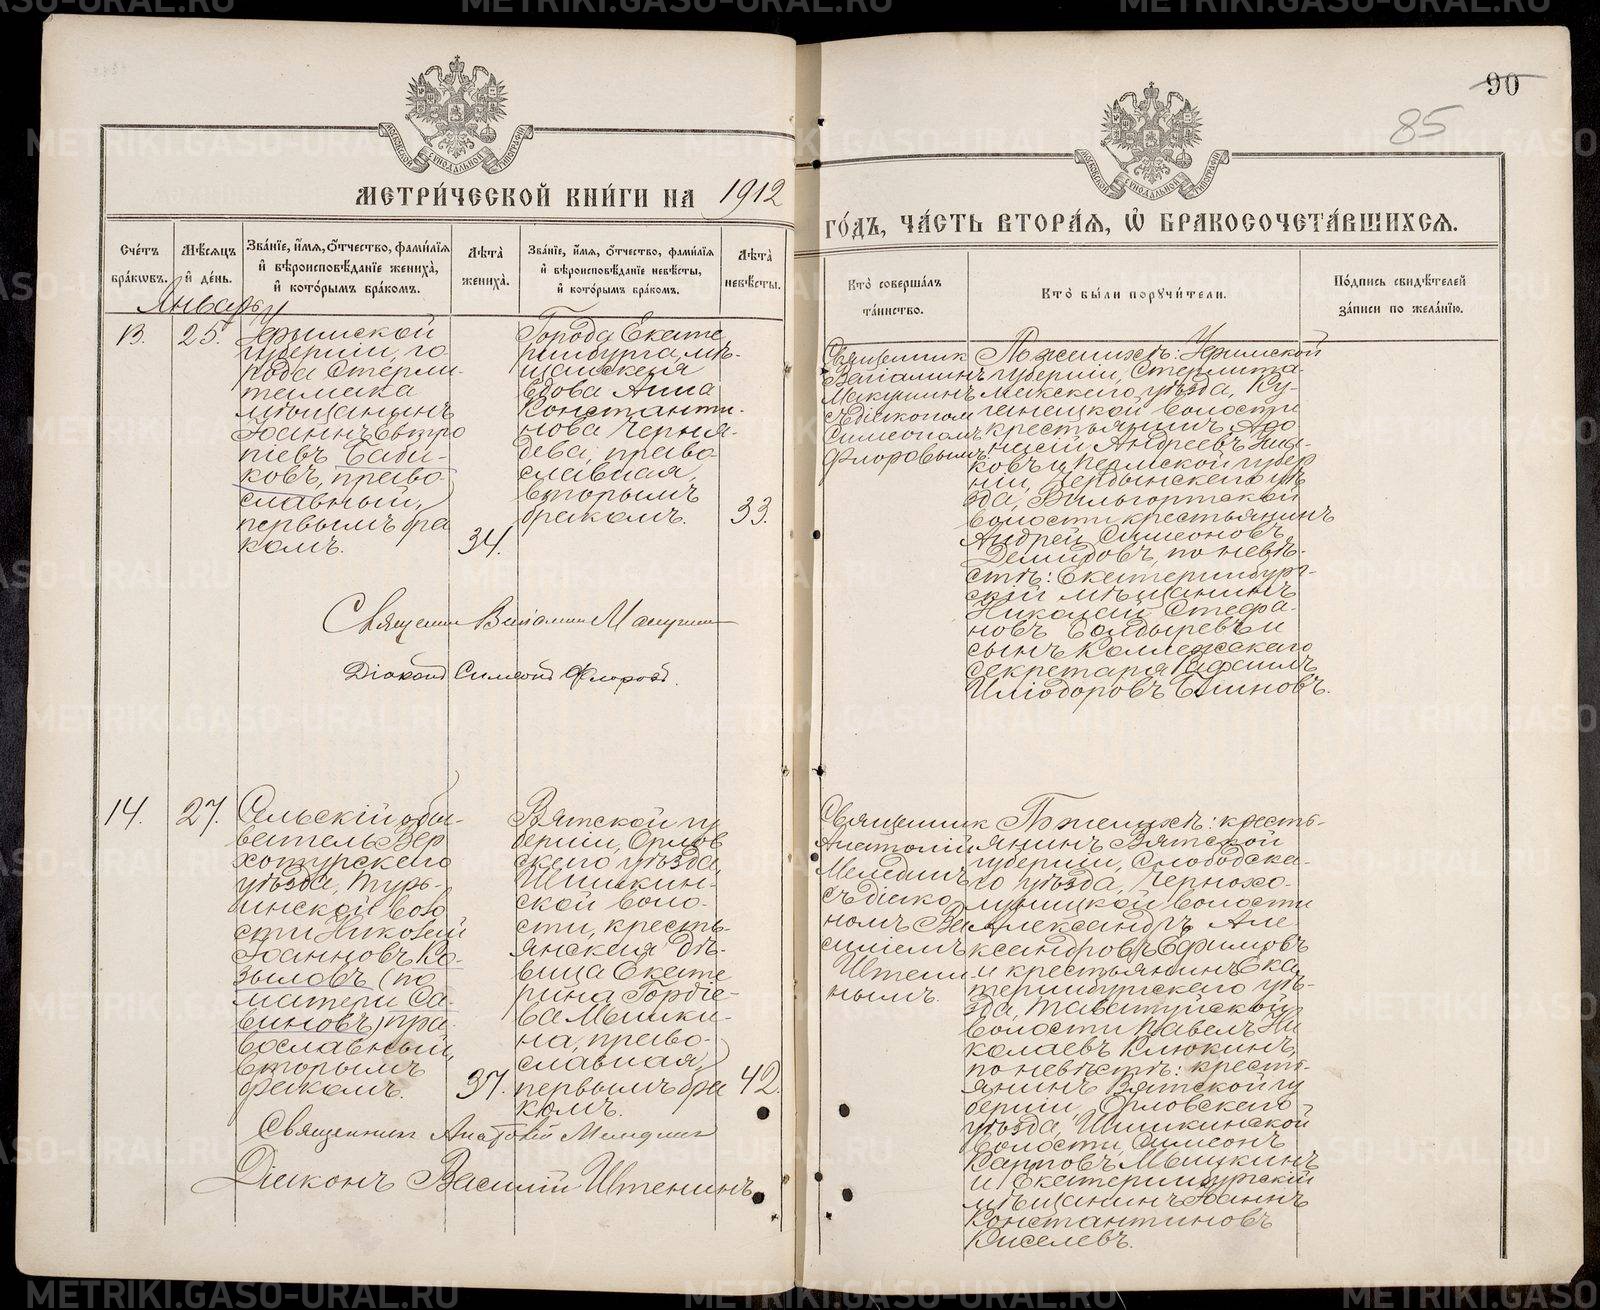 90
85
МЕТРИ́ЧЕСКОЙ КНИ́ГИ НА 1912
ГО́ДЪ, ЧА́СТЬ ВТОРА́Я, Ѡ҆ БРАКОСОЧЕТА́ВШИХСЯ.
Сче́тъ бра́кѡвъ.
Мѣ́сяцъ и҆ де́нь.
Зва́нїе, и҆́мя, ѻ҆́тчество, фами́лїя и҆ вѣроисповѣ́данїе жениха̀, и҆ кото́рымъ бра́комъ.
Лѣ́та жениха̀.
Зва́нїе, и҆́мя, ѻ҆́тчество, фами́лїя и҆ вѣроисповѣ́данїе невѣ́сты, и҆ кото́рымъ бра́комъ.
Лѣ́та невѣ́сты.
Кто̀ соверша́лъ та́инство.
Кто̀ бы́ли порꙋчи́тели.
По́дпись свидѣ́телей за́писи по жела́нїю.
Январь
13.
25.
Уфимской
губерніи, го
рода Стерли
тамака
мѣщанинъ
Іоаннъ Евтро
піевъ Баби-
ковъ, право
славный,
первымъ бра
комъ.
34.
Города Екате
ринбурга, мѣ-
щанская
вдова Анна
Константи-
нова Черня-
дева, право
славная,
вторымъ
бракомъ.
33.
Священникъ
Веніаминъ
Макушинъ
съ діакономъ
Симеономъ
Флоровымъ
По женихѣ: Уфимской
губерніи, Стерлита-
макскаго уѣзда, Ку-
ганецкой волости
крестьянинъ
Андреевъ
ковъ и Пермской губер
ніи, Чердынскаго уѣ
зда, Вильгортской
волости крестьянинъ
Андрей Симеоновъ
Демидовъ, по невѣ-
стѣ: Екатеринбург-
скій мѣщанинъ
Николай Стефа-
новъ Болдыревъ и
сынъ Коллежскаго
секретаря Рафаилъ
Иліодоровъ Блиновъ.
Священникъ Веніаминъ Макушинъ
Діаконъ Симеонъ Флоровъ.
14.
27.
Сельскій обы-
ватель Вер
хотурскаго
уѣзда, Турь-
инской воло
сти Николай
Іоанновъ Ко-
зыловъ (по
матери Са-
виновъ) пра
вославный,
вторымъ
бракомъ.
37.
Вятской гу
берніи, Орлов
скаго уѣзда,
Шишкин-
ской воло-
сти, кресть-
янская дѣ-
вица Екате
рина Гордіе-
ва Мышки-
на, право-
славная,
первымъ бра
комъ.
42.
Священник
Анатолій
Меледин
съ діако
номъ Ва
силіемъ
Штени
нымъ.
По женихѣ: кресть-
янинъ Вятской
губерніи, Слободска-
го уѣзда, Чернохо-
луницкой волости
Александръ Але
ксандровъ Ефимовъ
и крестьянинъ Ека
теринбургскаго уѣ-
зда, Таватуйской
волости Павелъ Ни
колаевъ Клюкинъ,
по невѣстѣ: кресть-
янинъ Вятской гу
берніи, Орловскаго
уѣзда, Шишкинской
волости, Симеонъ
Карповъ Мышкинъ
и Екатеринбургскій
мѣщанинъ Іоаннъ
Константиновъ
Киселевъ.
Священникъ Анатолій Меледин
Діаконъ Василій Штенинъ
METRIKI.GASO-URAL.RU